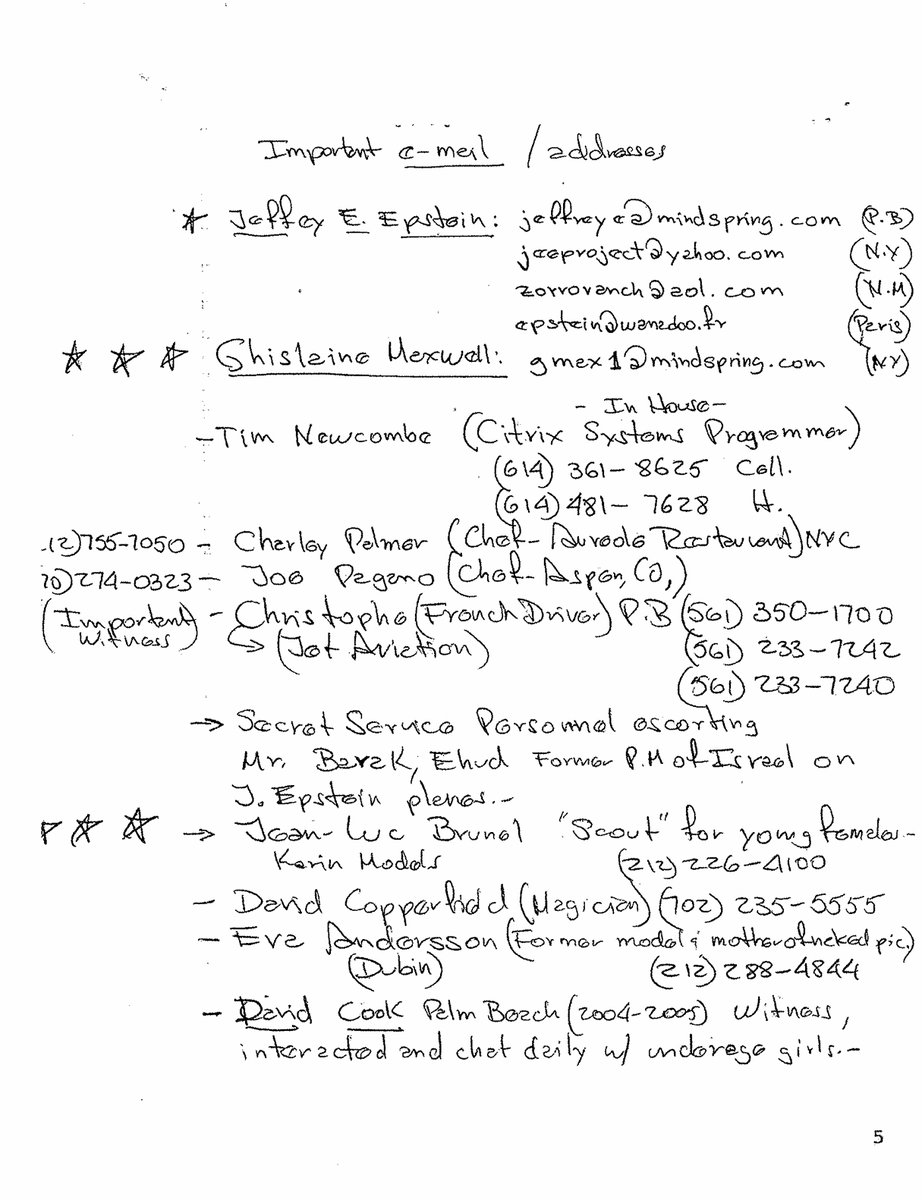 Important e-mail / addresses
★ Jeffrey E. Epstein: jeffreye@mindspring.com (P.B)
jeeproject@yahoo.com (N.Y)
zorroranch@aol.com (N.M)
epstein@wanadoo.fr (Paris)
★ ★ ★ Ghislaine Maxwell: gmax1@mindspring.com (NY)
- In House -
- Tim Newcombe (Citrix Systems Programmer)
(614) 361-8625 Cell.
(614) 481-7628 H.
12)755-7050 - Charley Palmer (Chef- Aureole Restaurant) NYC
70)274-0323 - Joe Pagano (Chef- Aspen, CO,)
(Important Witness) - Christophe (French Driver) P.B (561) 350-1700
↳ (Jet Aviation) (561) 233-7242
(561) 233-7240
→ Secret Service Personnel escorting
Mr. Barak, Ehud Former P.M of Israel on
J. Epstein planes.-
★ ★ → Jean-Luc Brunel "Scout" for young females.-
Karin Models (212) 226-4100
- David Copperfield (Magician) (702) 235-5555
- Eva Andersson (Former model & mother of naked pic.)
(Dubin) (212) 288-4844
- David Cook Palm Beach (2004-2005) Witness,
interacted and chat daily w/ underage girls.-
5